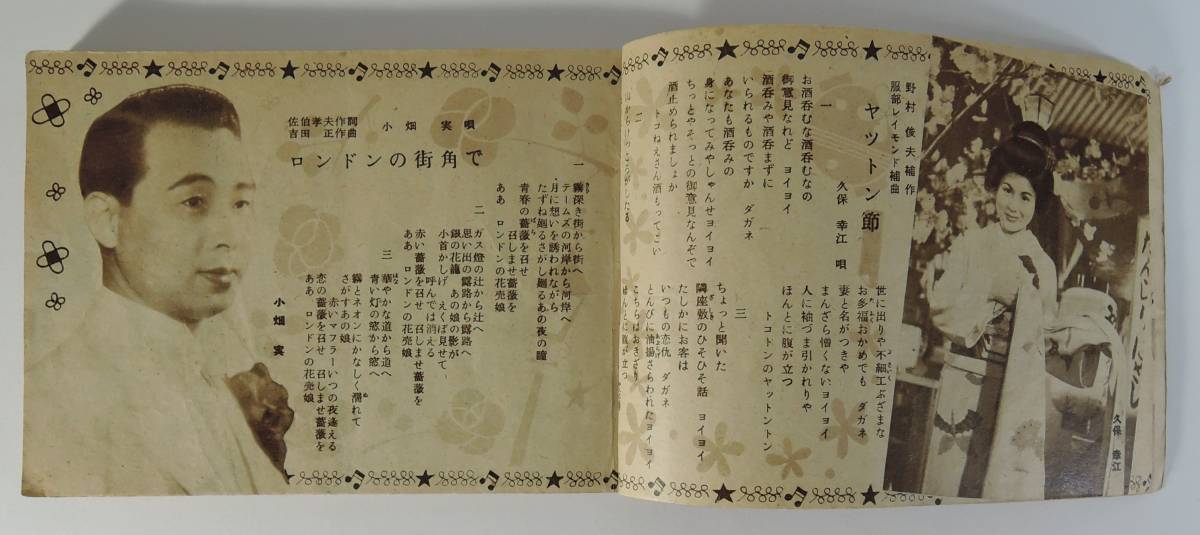 野村俊夫補作
服部レイモンド補曲
ヤットン節
久保幸江 唄
一
お酒呑むな酒呑むなの
御意見なれど ヨイヨイ
酒呑みや酒呑まずに
いられるものですか ダガネ
あなたも酒呑みの
身になってみやしゃんせヨイヨイ
ちっとやそっとの御意見なんぞで
酒止められましょか
トコねえさん酒もってこい
二
世に出りや不細工ぶざまな
お多福おかめでも ダガネ
妻と名がつきや
まんざら憎くないヨイヨイ
人に袖づま引かれりや
ほんとに腹が立つ
トコトンのヤットントン
三
ちょっと聞いた
隣座敷のひそひそ話 ヨイヨイ
たしかにお客は
いつもの恋仇 ダガネ
とんびに油揚さらわれたヨイヨイ
久保幸江
佐伯孝夫作詞
吉田正作曲
小畑実唄
ロンドンの街角で
一
霧深き街から街へ
テームズの河岸から河岸へ
月に想いを誘われながら
たずね廻るさがし廻るあの夜の瞳
青春の薔薇を召せ
召しませ薔薇を
ああ ロンドンの花売娘
二
ガス燈の辻から辻へ
思い出の露路から露路へ
銀の花籠 あの娘の影が
小首かしげ えくぼ見せて
呼んでは消える
赤い薔薇を召せ 召しませ薔薇を
ああ ロンドンの花売娘
三
華やかな道から道へ
青い灯の窓から窓へ
霧とネオンにかなしく濡れて
さがすあの娘
赤いマフラーいつの夜逢える
恋の薔薇を召せ 召しませ薔薇を
ああ ロンドンの花売娘
小畑実